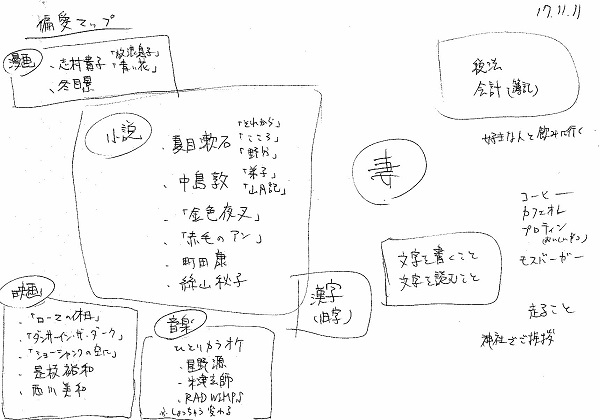 偏愛マップ
17.11.11
漫画
・志村貴子「放浪息子」
「青い花」
・冬目景
小説
・夏目漱石「それから」
「こころ」
「野分」
・中島敦「弟子」
「山月記」
・「金色夜叉」
・「赤毛のアン」
・町田康
・絲山秋子
妻
税法
会計(簿記)
好きな人と飲みに行く
コーヒー
カフェオレ
プロティン
モスバーガー
文字を書くこと
文字を読むこと
漢字
(旧字)
走ること
神社でご挨拶
映画
・「ローマの休日」
・「ダンサー・イン・ザ・ダーク」
・「ショーシャンクの空に」
・是枝裕和
・西川美和
音楽
ひとりカラオケ
・星野源
・米津玄師
・RADWIMPS
しょっちゅう変わる